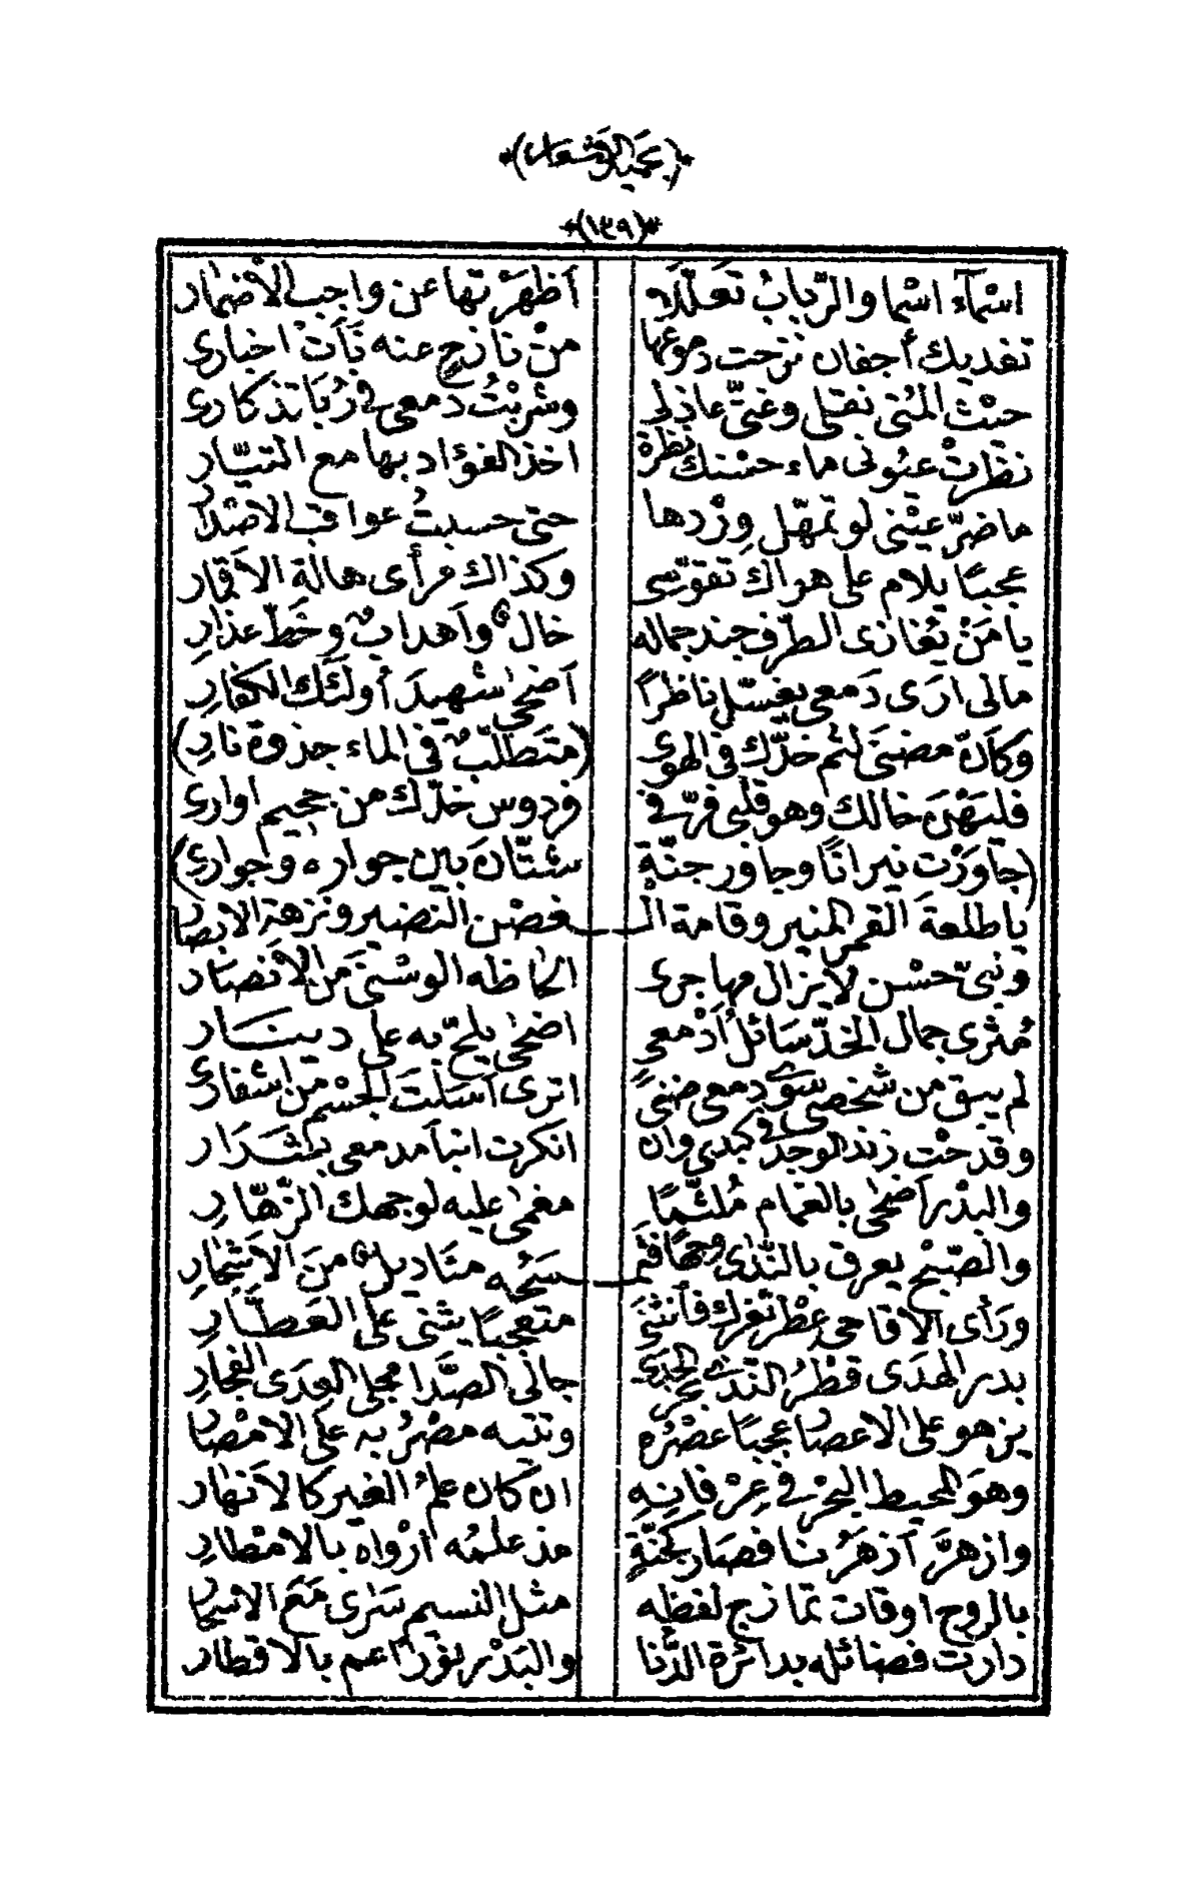 (١٣٩)
اسْمَآء اسْما والرّبابُ تَعلّلًا اَظهَرْتها عن واجب الاْضمار
تفديك أجفان نزحت دموعها منْ نازحٍ عنه نَأَتْ اخبارى
حيْث المُنى نقلى وغنّى عاذلى وشربْتُ دمعى فى رُبَا تذكارى
نظَرتْ عيونى ماء حسْنك نظرة اخذ الفؤاد بها مع التيّار
ما ضرّ عيْنى لو تمهّل وِرْدها حتى حسبتُ عواقب الاصْدار
عجبًا يلام على هواك تقوّسى وكذاك من رأى هالة الاَقمار
يا مَنْ يُغازى الطّرف جند جماله خال وأهدابٌ وخَطّ عذارِ
مالى ارَى دَمعى يغسّل ناظرًا اَضحى شهيدَ أولئك الكفّارِ
وكأنّ مضنىً لثم خدّك فى الهوى (متَطلّبٌ فى الماء جذوة نارِ)
فليهْنَ خالك وهو قلبى فرّ فى فردوس خدّك من جحيم اوارى
(جَاوَرْت نيرانًا وجاور جنّةً شتّانَ بين جواره وجوارى)
يا طلعةَ القمر المنير وقامة الْـ ـغصْن النضير ونزهة الابصار
ونبىّ حسْن لا يزال مهاجرى الحاظه الوسْنىَ مَن الاَنْصَار
مُثْرى جمال الخدّ سَائلُ أدْمعى اضحى يلحّ به على دينار
لم يبق من شخصى سوَى دمعى ضنىً اترى اَسَلتَ الجسْم من اشفارى
وقدحْت زند الوجد فى كبدى وان انكرت انبأ مدمعى بِشَرَار
والبدْر اَضحى بالغمام مُلثّمًا مغمى عليه لوجهك الزّهّارِ
والصّبْح يعرق بالنّدى وجهًا فَمَـ ـسَحُه مناديل منَ الاَشجار
ورَأى الاقاحى عِطْر ثغرك فأنثنَى متعجّبًا يثنى على العَطّارِ
بدر الهدَى قطْرُ النّدى بحر الجدَى جالى الصَّدا مجلى العِدَى الفجارِ
يزهو على الاعصار عجبًا عصْرُه وتتيه مصْرُ به على الامْصار
وهوَ المحيط البحْر فى عِرْفانِهِ ان كان علمُ الغير كالاَنهار
وازهرَّ اَزهَرُنا فصَار كجنّةٍ مذ علمُه اَرْواه بالامْطارِ
بالروح اوقات تمازج لفظه مثل النسيم سَرَى مَعَ الاسْحار
دارت فضائله بدائرة الدُّنا والبَدْر نورًا عم بالاقطار